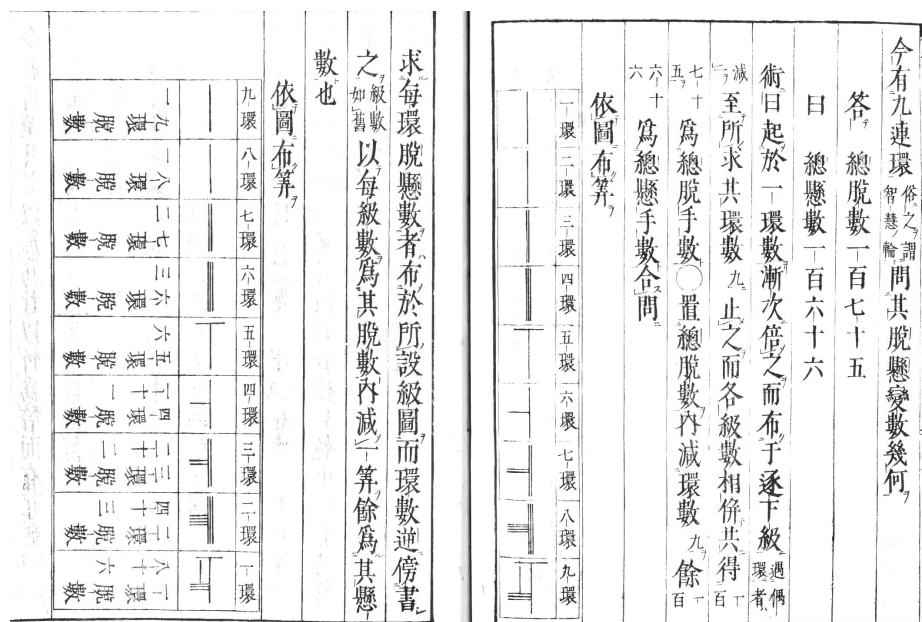 今有九連環俗之謂智慧輪問其脱懸變數幾何
答 總脱數一百七十五
曰 總懸數一百六十六
術曰起於一環數漸次倍之而布于逐下級遇偶環者
減一至所求共環數九止之而各級數相併共得一百
七十五爲總脱手數〇置總脱數内減環數九餘一百
六十六爲總懸手數合問
依圖布筭
一環
二環
三環
四環
五環
六環
七環
八環
九環
求每環脱懸數者布於所設級圖而環數逆傍書
之級數如舊以每級數爲其脱數内減一筭餘爲其懸
數也
依圖布筭
九環
八環
七環
六環
五環
四環
三環
二環
一環
九環脱數一
八環脱數一
七環脱數二
六環脱數三
五環脱數六
四環脱數十一
三環脱數二十二
二環脱數四十三
一環脱數八十六